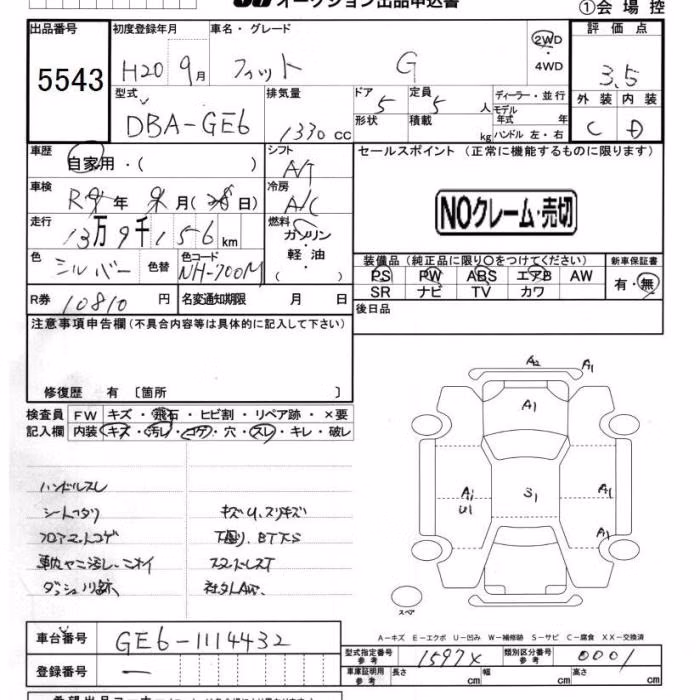 オークション出品申込書
①会場控
出品番号 初度登録年月 車名・グレード 評価点
5543 H20 9月 フィット G 2WD・4WD 3.5
型式 排気量 ドア 定員 ディーラー・並行 外装 内装
DBA-GE6 1330cc 5 5人 モデル年式 年 C D
形状 積載 kg ハンドル 左・右
車歴 自家用・( ) シフト A/T セールスポイント (正常に機能するものに限ります)
車検 R 年 月( 日) 冷房 A/C NOクレーム・売切
走行 13万9千156km 燃料 ガソリン・軽油・( )
装備品 (純正品に限り○をつけてください) 新車保証書
色 シルバー 色替 色コード NH-700M PS PW ABS エアB AW 有・無
SR ナビ TV カワ
R券 10810円 名変通知期限 月 日 後日品
注意事項申告欄(不具合内容等は具体的に記入して下さい)
修復歴 有 〔箇所 〕
検査員 FW キズ・飛石・ヒビ割・リペア跡・×要
記入欄 内装 キズ・汚レ・コゲ・穴・スレ・キレ・破レ
ハンドルスレ
シートヘタリ キズU、スリキズ
フロアマットコゲ 下廻り、
車内ヤニ汚レ、ニオイ
A2 A1
A1
A1 U1 S1 A1
A1
スペア
A-キズ E-エクボ U-凹み W-補修跡 S-サビ C-腐食 XX-交換済
車台番号 GE6-1114432
型式指定番号 参考 15974 類別区分番号 参考 0001
登録番号 ー
車庫証明用 参考 長さ cm 幅 cm 高さ cm